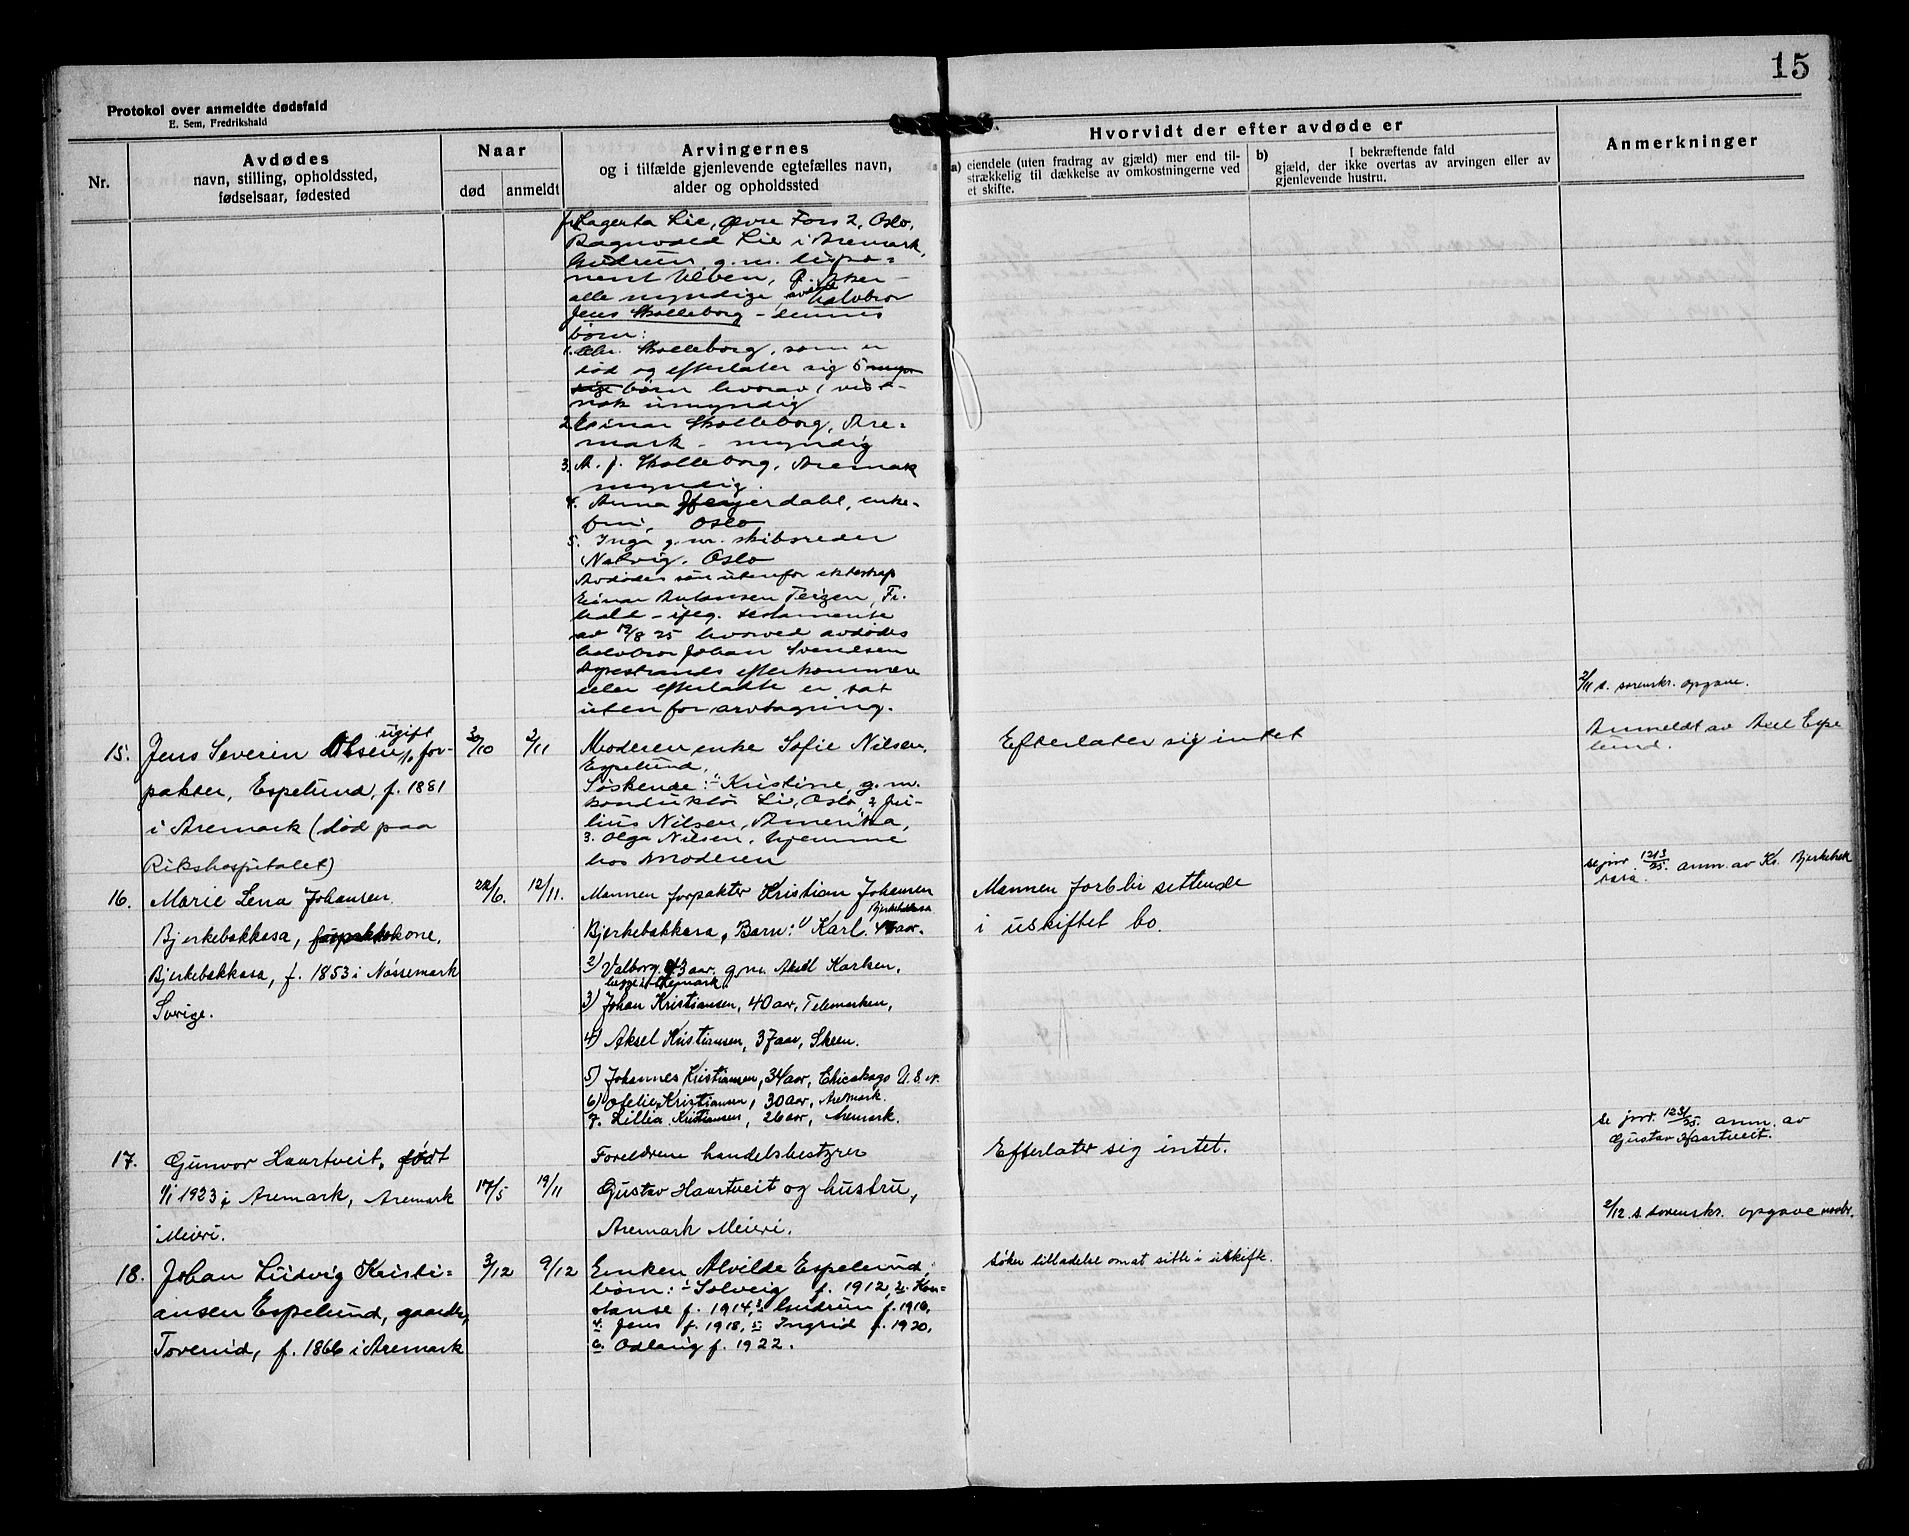 15
Protokol over anmeldte dødsfald
E. Sem, Fredrikshald
Nr.
Avdødes
navn, stilling, opholdssted,
fødselsaar, fødested
Naar
død
anmeldt
Arvingernes
og i tilfælde gjenlevende egtefælles navn,
alder og opholdssted
Hvorvidt der efter avdøde er
a) eiendele (uten fradrag av gjæld) mer end til-
strækkelig til dækkelse av omkostningerne ved
et skifte.
b) I bekræftende fald
gjæld, der ikke overtas av arvingen eller av
gjenlevende hustru.
Anmerkninger
Lagerta Lie, Øvre Foss 2, Oslo,
Ragnvald Lie i Aremark,
Gudrun g.m.
Ulven,
alle myndige, halvbror
Jens Skolleborg – dennes
børn:
1. Chr. Skolleborg, som er
død og efterlater sig 5
børn hvorav 1
umyndig
2. Einar Skolleborg, Are-
mark – myndig
3. A. J. Skolleborg, Aremark
myndig.
4. Anna Heyerdahl, enke-
fru, Oslo
5. Inga g.m. skibsreder
Natvig, Oslo
Avdødes søn utenfor ekteskap
Einar Antonsen Teigen, Fr.
hald – ifølg. testamente
av 19/8 25 hvorved avdødes
halvbror Johan Svendsen
efterkommere
eller efterlatte er sat
utenfor arvtagning.
2/11 s. sorenskr. opgave.
15. Jens Severin Olsen, ugift, for-
pakter, Espelund, f. 1881
i Aremark (død paa
Rikshospitalet)
3/11
Moderen enke Sofie Nilsen,
Espelund,
Søskende: 1. Kristine, g.m.
konduktør Li, Oslo, 2. Ju-
lius Nilsen, Amerika,
3. Olga Nilsen, hjemme
hos moderen
Efterlater sig intet
Anmeldt av Axel Espe
lund.
16. Marie Lena Johansen
Bjerkebakkasa, kone,
Bjerkebakkasa, f. 1853 i Nøssemark
Sverige.
22/6. 12/11.
Mannen forpakter Kristian Johansen
Bjerkebakkasa, Barn: 1) Karl. 47 aar.
2) Valborg 43 aar, g.m. Aksel Karlsen,
3) Johan Kristiansen, 40 aar, Telemarken,
4) Aksel Kristiansen, 37 aar, Skeen.
5) Johannes Kristiansen, 34 aar, Chicakago U.S.A.
6) Ofelie Kristiansen, 30 aar, Aremark.
7. Lillia Kristiansen, 26 aar, Aremark.
Mannen forblir sittende
i uskiftet bo.
se jnr 1213/25. anm. av Kr. Bjerkebak
kasa.
17. Gunvor Haartveit, født
1/1 1923 i Aremark, Aremark
Meieri.
17/5 19/11
Foreldrene handelsbestyrer
Gustav Haartveit og hustru,
Aremark Meieri.
Efterlater sig intet.
se jnr 1231/25. anm. av
Gustav Haartveit.
2/12 s. sorenskr. opgave novbr.
18. Johan Ludvig Kristi-
ansen Espelund, gaardb,
Toverud, f. 1866 i Aremark
3/12 9/12
Enken Alvilde Espelund,
børn: 1. Solveig f. 1912, 2. Kon-
stanse f. 1914, 3. Gudrun f. 1916,
4. Jens f. 1918, 5. Ingrid f. 1920,
6. Odlaug f. 1922.
søker tilladelse om at sitte i uskifte.